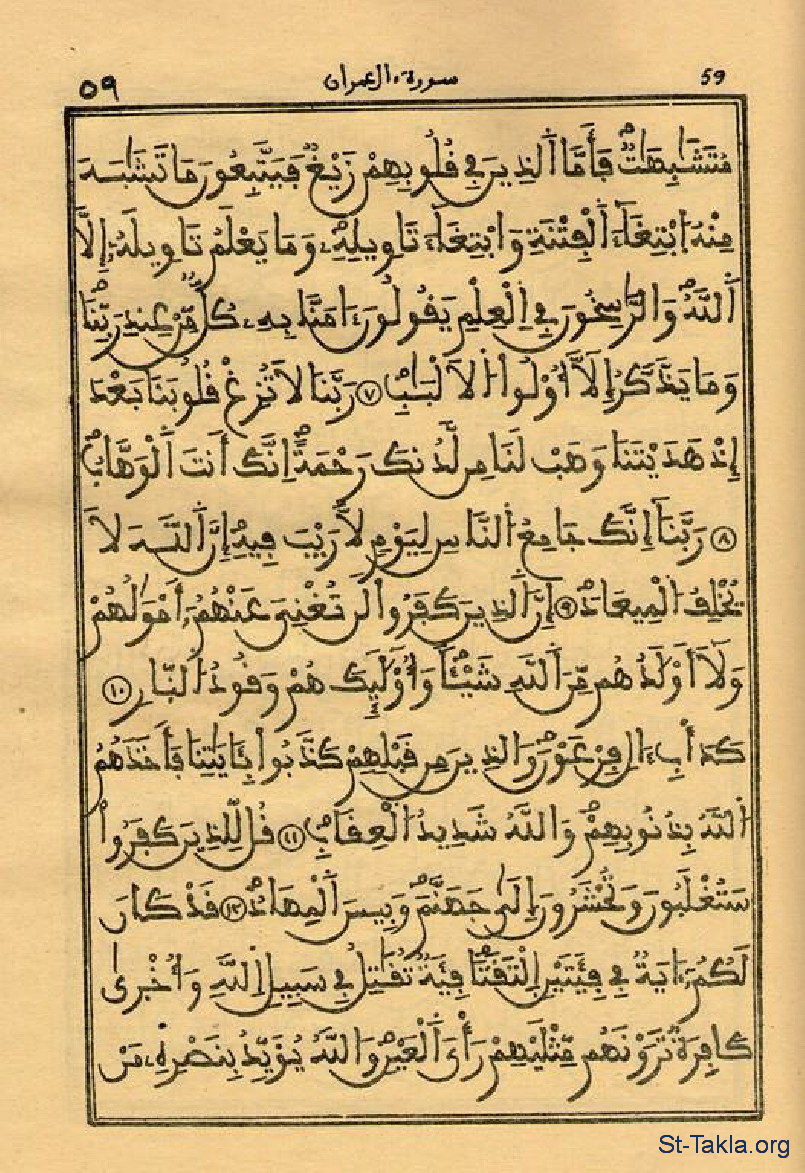 ٥٩ سورة ءال عمران 59
مُتَشَٰبِهَٰتٌ فَأَمَّا اَ۬لذِينَ فِے قُلُوبِهِمْ زَيْغٌ فَيَتَّبِعُونَ مَا تَشَٰبَهَ
مِنْهُ اُ۪بْتِغَآءَ اَ۬لْفِتْنَةِ وَابْتِغَآءَ تَاوِيلِهِۦ وَمَا يَعْلَمُ تَاوِيلَهُۥٓ إِلَّا
اَ۬للَّهُ وَالرَّٰسِخُونَ فِے اِ۬لْعِلْمِ يَقُولُونَ ءَامَنَّا بِهِۦ كُلٌّ مِّنْ عِندِ رَبِّنَا
وَمَا يَذَّكَّرُ إِلَّآ أُوْلُواْ اُ۬لْأَلْبَٰبِ ٧ رَبَّنَا لَا تُزِغْ قُلُوبَنَا بَعْدَ
إِذْ هَدَيْتَنَا وَهَبْ لَنَا مِن لَّدُنكَ رَحْمَةً إِنَّكَ أَنتَ اَ۬لْوَهَّابُ
٨ رَبَّنَآ إِنَّكَ جَامِعُ اُ۬لنَّاسِ لِيَوْمٍ لَّا رَيْبَ فِيهِ إِنَّ اَ۬للَّهَ لَا
يُخْلِفُ اُ۬لْمِيعَادَ ٩ إِنَّ اَ۬لذِينَ كَفَرُواْ لَن تُغْنِيَ عَنْهُمُۥٓ أَمْوَٰلُهُمْ
وَلَآ أَوْلَٰدُهُم مِّنَ اَ۬للَّهِ شَيْـٔاً وَأُوْلَٰٓئِكَ هُمْ وَقُودُ اُ۬لنّ۪ارِ ١٠
كَدَأْبِ ءَالِ فِرْعَوْنَ وَالذِينَ مِن قَبْلِهِمْ كَذَّبُواْ بِـَٔايَٰتِنَا فَأَخَذَهُمُ
اُ۬للَّهُ بِذُنُوبِهِمْ وَاللَّهُ شَدِيدُ اُ۬لْعِقَابِ ١١ قُل لِّلذِينَ كَفَرُواْ
سَتُغْلَبُونَ وَتُحْشَرُونَ إِلَىٰ جَهَنَّمَ وَبِيسَ اَ۬لْمِهَادُ ١٢ قَدْ كَانَ
لَكُمُۥٓ ءَايَةٌ فِے فِئَتَيْنِ اِ۪لْتَقَتَا فِئَةٌ تُقَٰتِلُ فِے سَبِيلِ اِ۬للَّهِ وَأُخْر۪ىٰ
كَافِرَةٌ تَرَوْنَهُم مِّثْلَيْهِمْ رَأْيَ اَ۬لْعَيْنِ وَاللَّهُ يُؤَيِّدُ بِنَصْرِهِۦ مَنْ
St-Takla.org